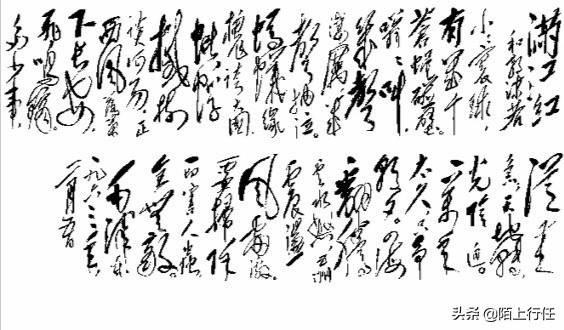 滿江红
和郭沫若
小小寰球，
有几个
苍蝇碰壁。
嗡嗡叫，
几声
凄厉，几
声抽泣。
蚂蚁缘
槐夸大国，
蚍蜉
撼树
谈何易。正
西风落葉
下长安，
飛鸣镝。
多少事，
从来
急；天地转，
光阴迫。
一万年
太久，只争
朝夕。四海
翻腾
云水怒，五洲
震荡
风雷激。
要扫除
一切害人虫，
全无敌。
毛泽东
一九六三年
二月五日
头条 @陌上行任